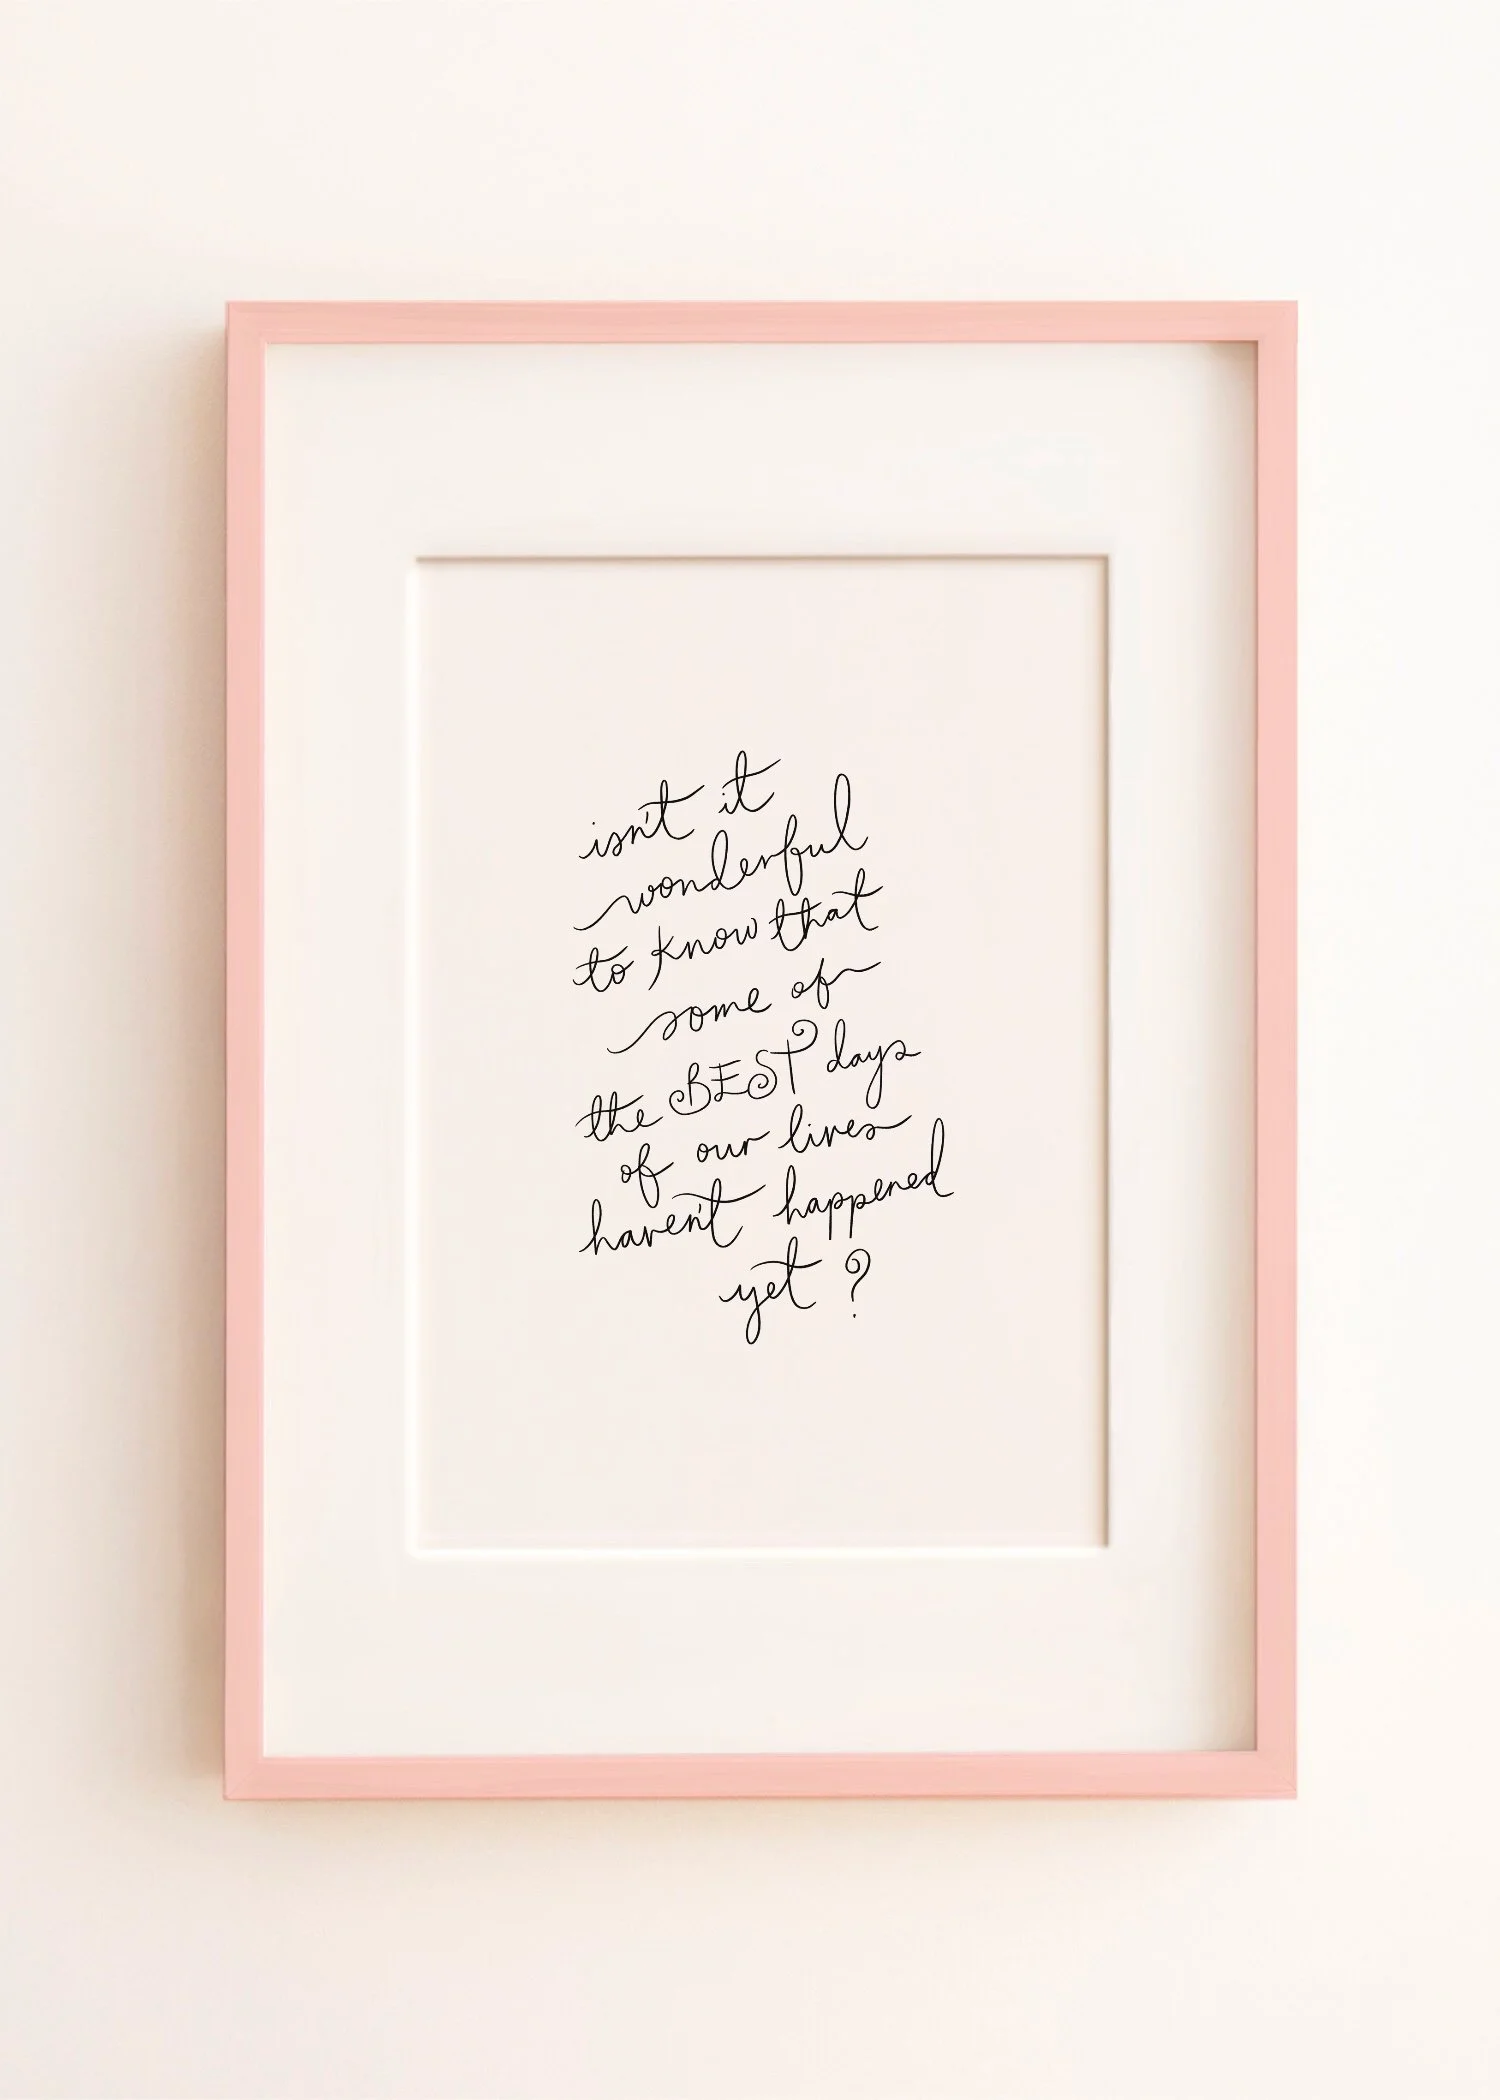 isn't it
wonderful
to know that
some of
the BEST days
of our lives
haven't happened
yet ?